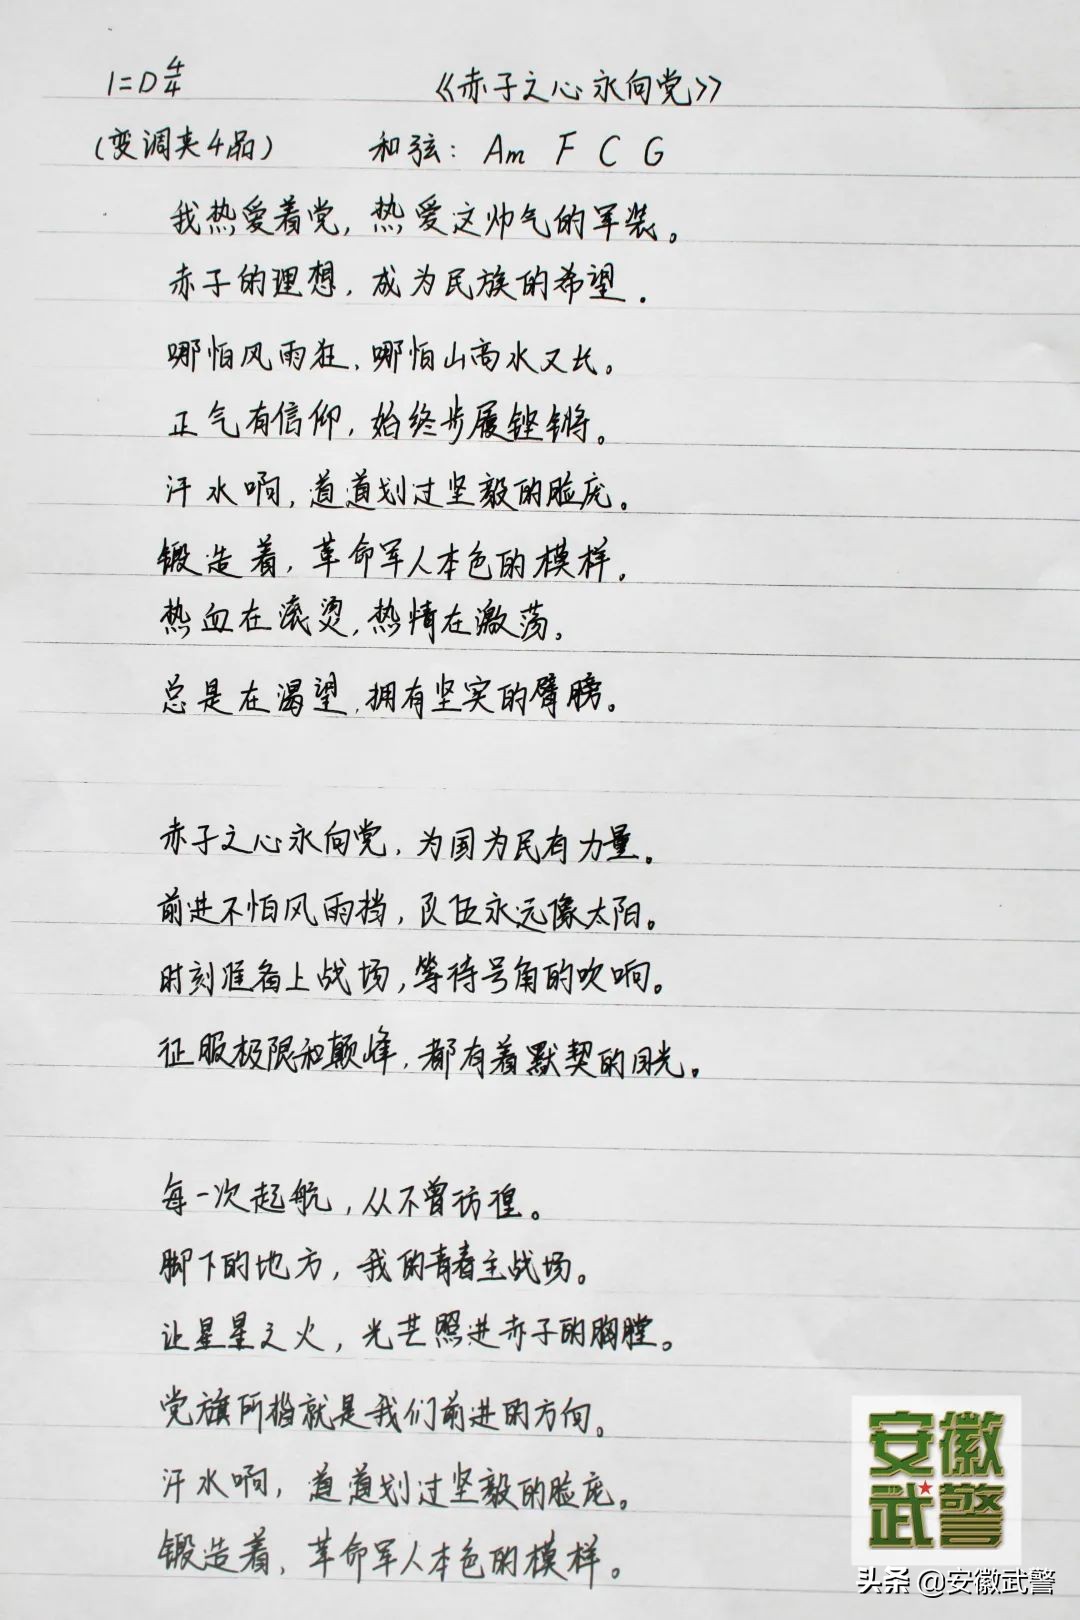 1=D 4/4 《赤子之心永向党》
(变调夹4品) 和弦: Am F C G
我热爱着党,热爱这帅气的军装。
赤子的理想,成为民族的希望.
哪怕风雨狂,哪怕山高水又长。
正气有信仰,始终步履铿锵。
汗水啊,道道划过坚毅的脸庞。
锻造着,革命军人本色的模样。
热血在滚烫,热情在激荡。
总是在渴望,拥有坚实的臂膀。
赤子之心永向党,为国为民有力量。
前进不怕风雨挡,队伍永远像太阳。
时刻准备上战场,等待号角的吹响。
征服极限和巅峰,都有着默契的目光。
每一次起航,从不曾彷徨。
脚下的地方,我的青春主战场。
让星星之火,光芒照进赤子的胸膛。
党旗所指就是我们前进的方向。
汗水啊,道道划过坚毅的脸庞。
锻造着,革命军人本色的模样。
安徽
武警
头条 @安徽武警